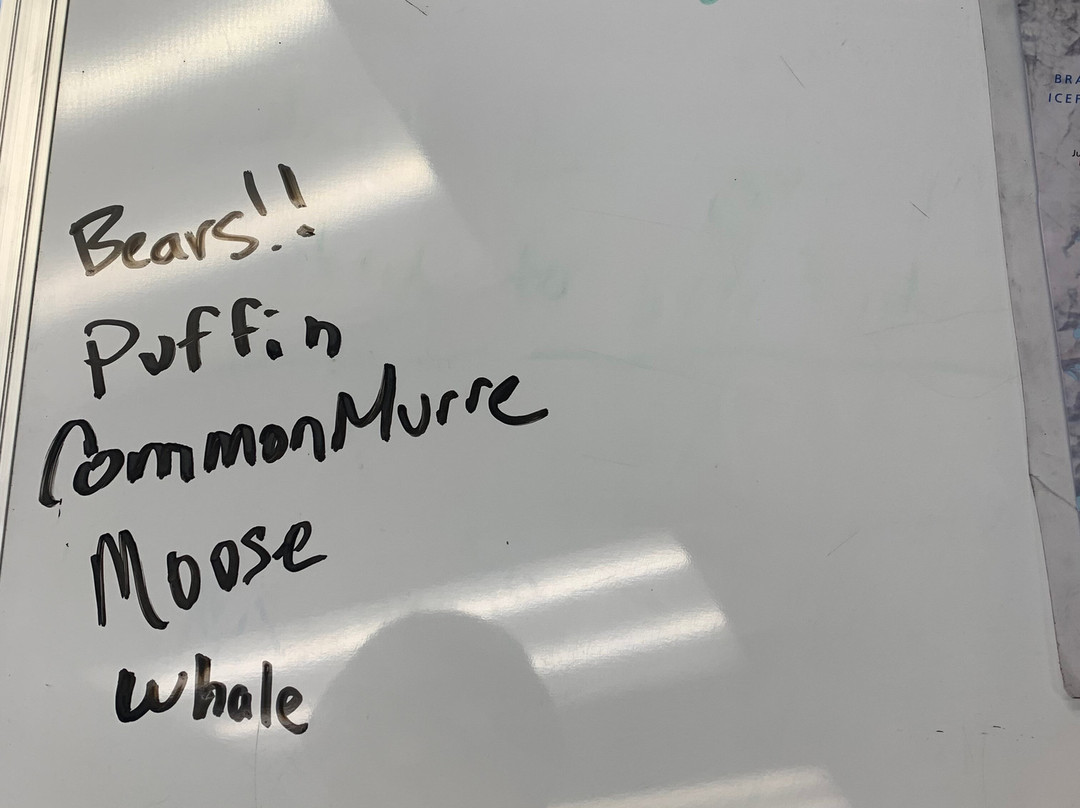 Bears!!
Puffin
Common Murre
Moose
whale